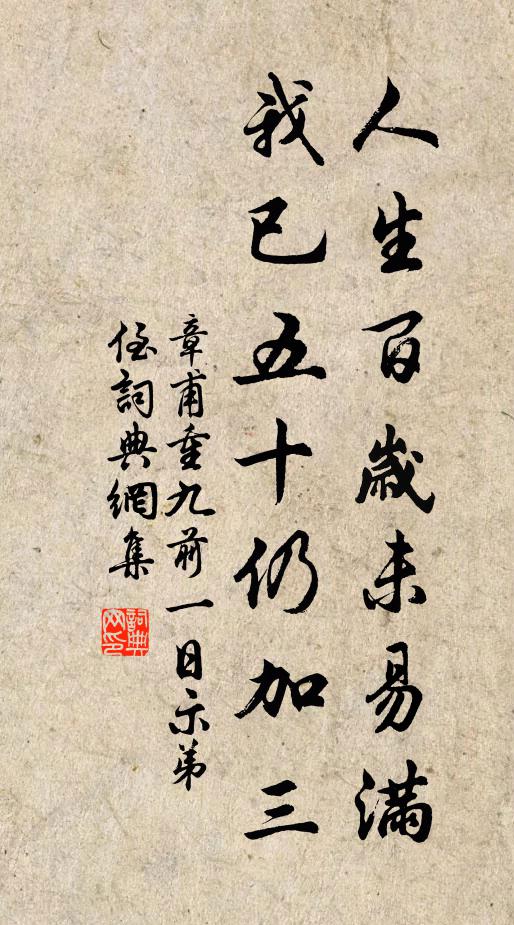 人生百歲未易滿
我已五十仍加三
章甫重九前一日示弟
侄詞典網集
詞典網印